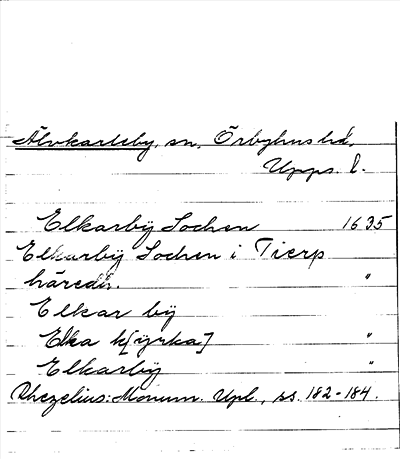 Älvkarleby, sn, Örbyhus hd,
Upps. l.
Elkarbÿ Sochen 1635
Elkarbÿ Sochen i Tierp
häredh. "
Elkar bÿ
Elka k[ÿrka] "
Elkarbÿ "
Rhezelius: Monum. Upl., ss. 182-184.